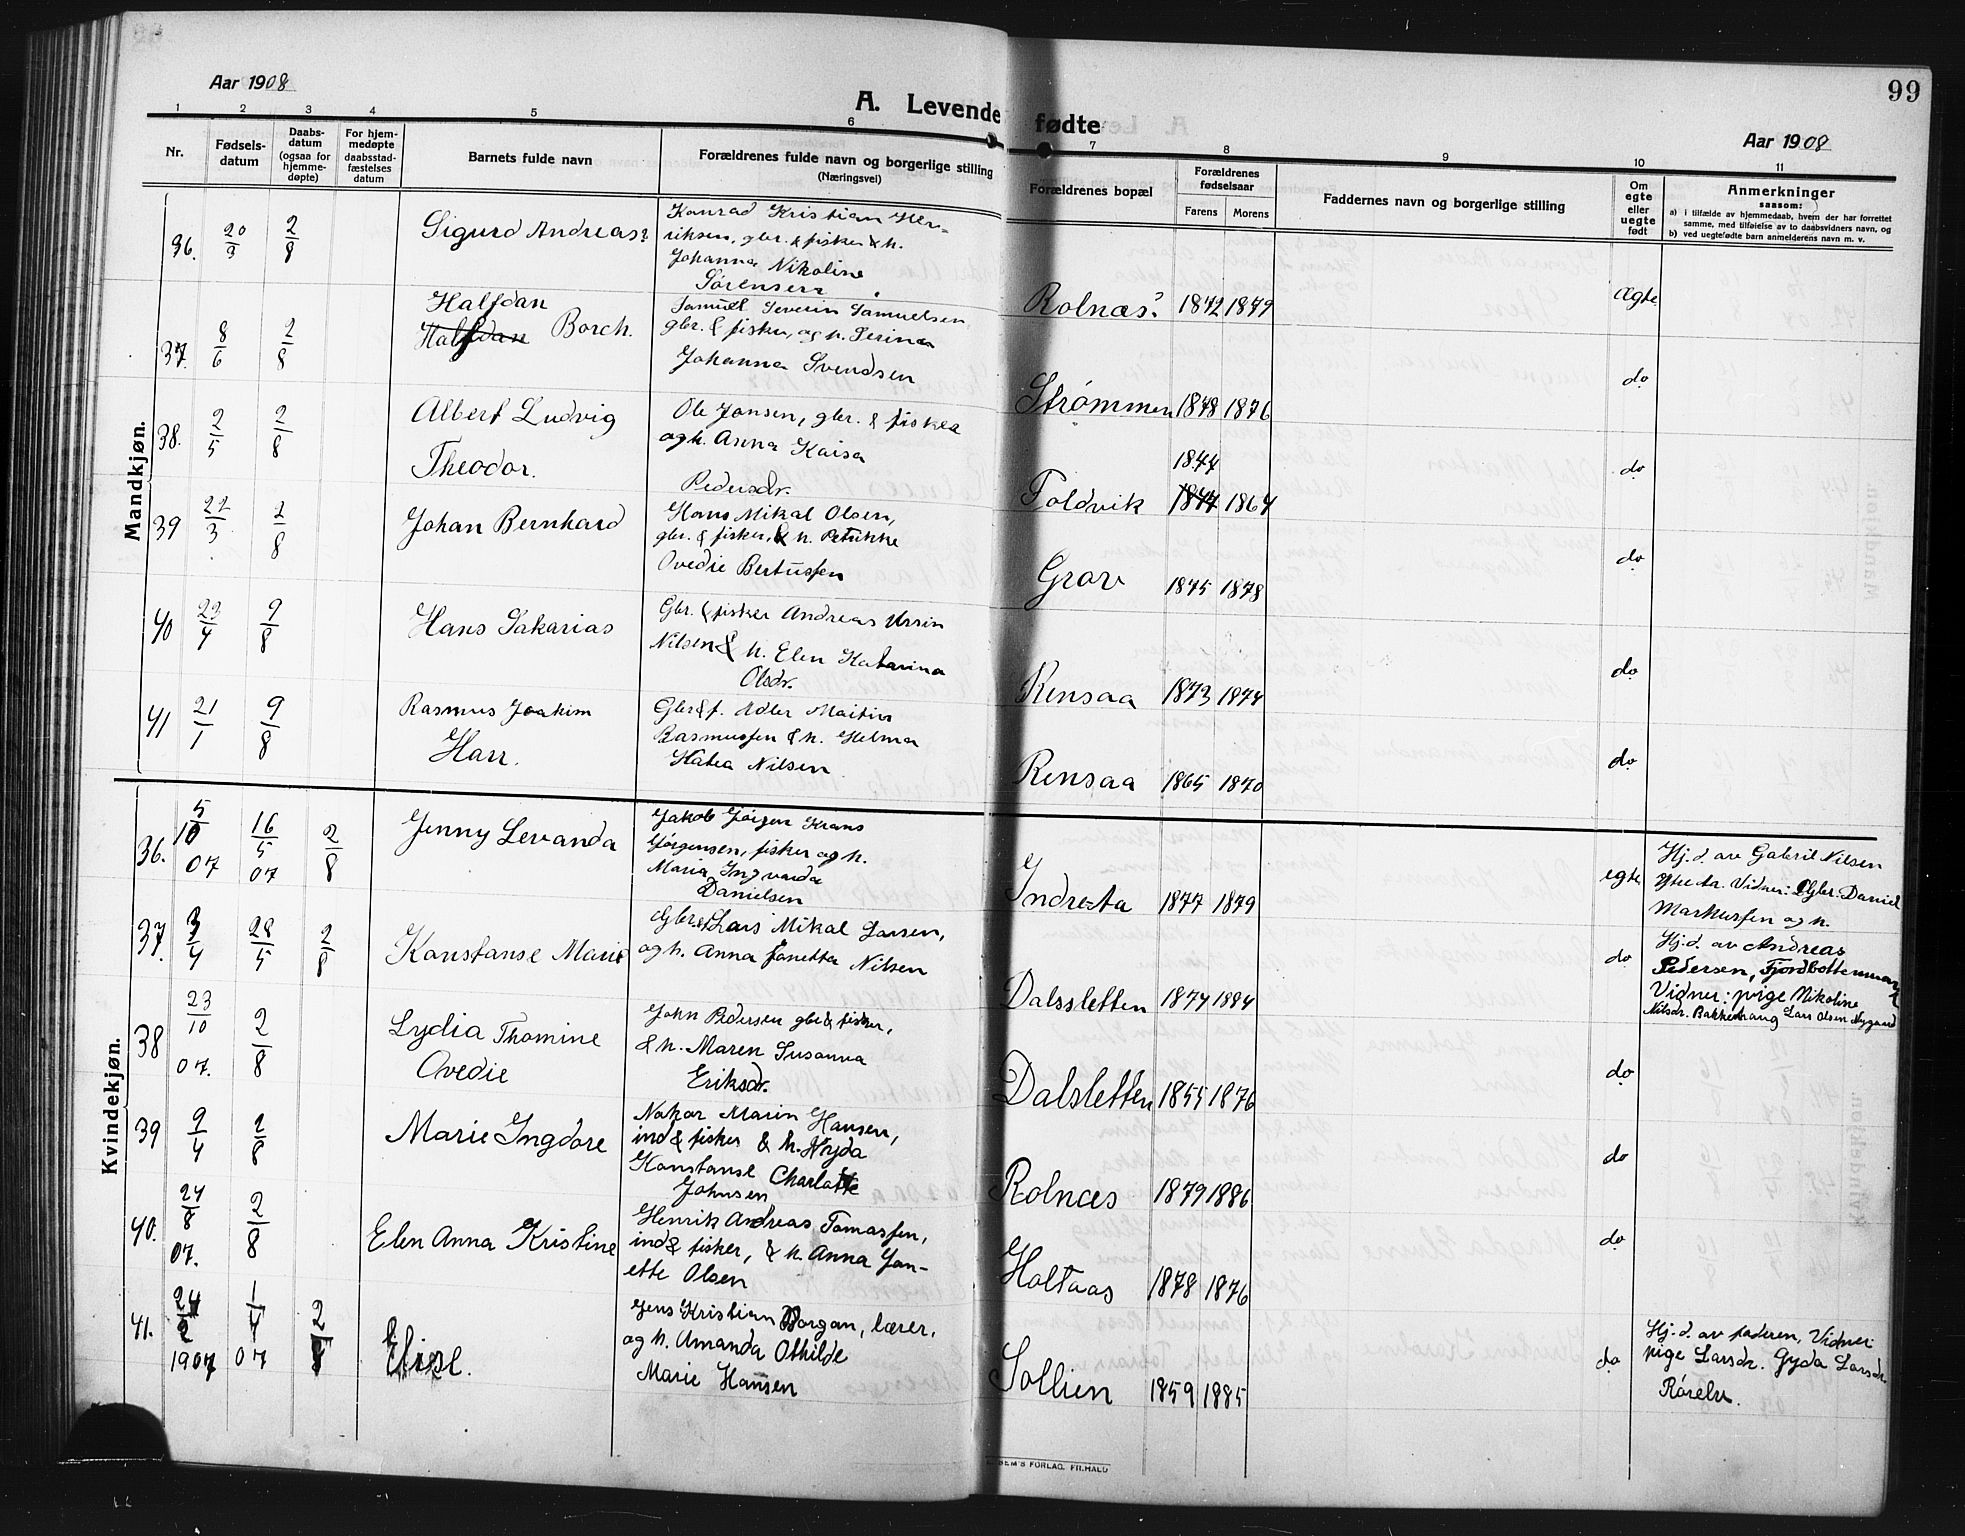 99
Aar 1908
A. Levende fødte
Aar 1908
1 2 3 4 5 6 7 8 9 10 11
Nr.
Fødsels-
datum
Daabs-
datum
(ogsaa for
hjemme-
døpte)
For hjem-
medøpte
daabsstad-
fæstelses
datum
Barnets fulde navn
Forældrenes fulde navn og borgerlige stilling
(Næringsvei)
Forældrenes bopæl
Forældrenes
fødselsaar
Farens Morens
Faddernes navn og borgerlige stilling
Om
egte
eller
uegte
født
Anmerkninger
saasom:
a) i tilfælde av hjemmedaab, hvem der har forrettet
samme, med tilføielse av to daabsvidners navn, og
b) ved uegtefødte barn anmelderens navn m. v.
Mandkjøn.
36. 20/3 2/8 Sigurd Andreas
Konrad Kristian Hen-
riksen, gbr. & fisker & h.
Johanna Nikoline
Sørensen
Rolnæs 1872 1879 Ægte
37. 8/6 2/8 Halfdan
Halfdan Borch.
Samuel Severin Samuelsen
gbr. & fisker, og h. Serina
Johanna Svendsen
Strømmen 1878 1876 do
38. 2/5 2/8 Albert Ludvig
Theodor.
Ole Jonsen, gbr. & fisker
og h. Anna Kaisa
Pedersdr.
Foldvik 1844
1847 1864 do
39 22/3 2/8 Johan Bernhard
Hans Mikal Olsen,
gbr. & fisker, & h. Petrikke
Ovedie Bertussen
Grov 1875 1878 do
40 23/4 9/8 Hans Sakarias
Gbr. & fisker Andreas Ursin
Nilsen & h. Elen Katarina
Olsdr.
Rensaa 1873 1874 do
41 21/1 9/8 Rasmus Joakim
Harr.
Gbr & f. Adler Martin
Rasmussen & h. Helma
Katea Nilsen
Rensaa 1865 1870 do
Kvindekjøn.
36. 5/10 07 16/5 07 2/8 Jenny Levanda
Jakob Jørgen Krans
Jørgensen, fisker og h.
Maria Ingvarda
Danielsen
Indresta 1877 1879 egte
Hj. d. av Gabriel Nilsen
Vidner: Gbr. Daniel
Markussen og h.
37. 3/4 28/5 2/8 Konstanse Marie
Gbr. Lars Mikal Larsen,
og h. Anna Janetta Nilsen
Dalssletten 1874 1884 do
Hj. d. av Andreas
Pedersen, Fjordbottenmark
Vidner: pige Nikoline
Nilsdr. Bakkehaug Lars Olsen Nygaard
38 23/10 07. 2/8 Lydia Thomine
Ovedie
John Pedersen gbr & fisker,
& h. Maren Susanna
Eriksdr.
Dalsletten 1855 1876 do
39 9/4 2/8 Marie Ingdore
Nokor Marin Hansen,
ind & fisker & h. Hyda
Konstanse Charlotte
Johnsen
Rolnæs 1879 1886 do
40. 24/8 07. 2/8 Elen Anna Kristine
Henrik Andreas Tomassen,
ind & fisker, & h. Anna Jan-
ette Olsen
Holtaas 1878 1876 do
41. 24/2 1907 1/4 07 2/8 Elise.
Jens Kristian Dorgan, lærer,
og h. Amanda Othilde
Marie Hansen
Sollien 1859 1885 do
Hj. d. av faderen, Vidner
pige Larsdr. Gyda Larsdr.
Rørelv.
FORLAG, FR.HALD